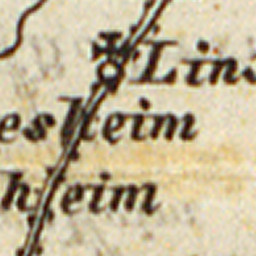 Lins
esheim
heim